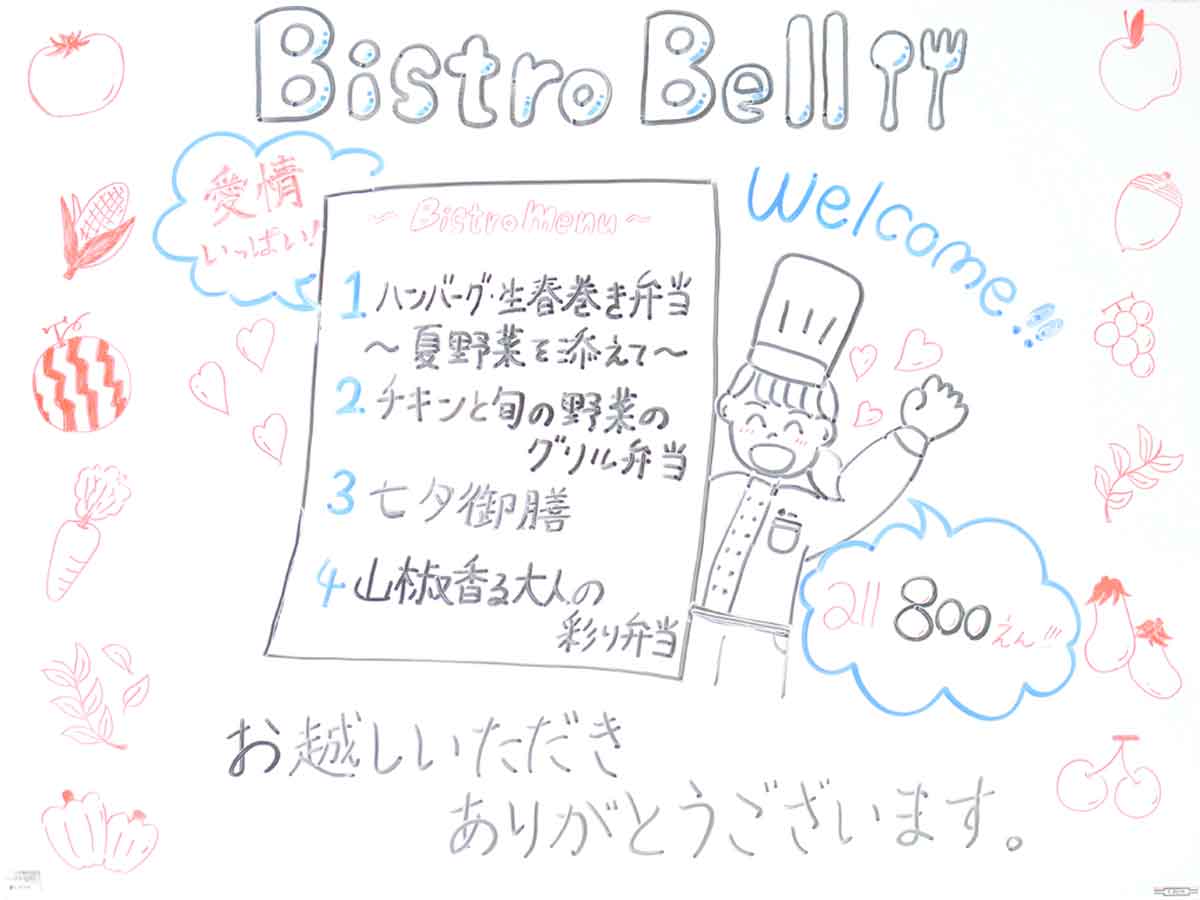 Bistro Bell
愛情
いっぱい!
Welcome!!
~Bistro Menu~
1. ハンバーグ・生春巻き弁当
~夏野菜を添えて~
2. チキンと旬の野菜の
グリル弁当
3 七夕御膳
4 山椒香る大人の
彩り弁当
all 800えん!!!
お越しいただき
ありがとうございます。